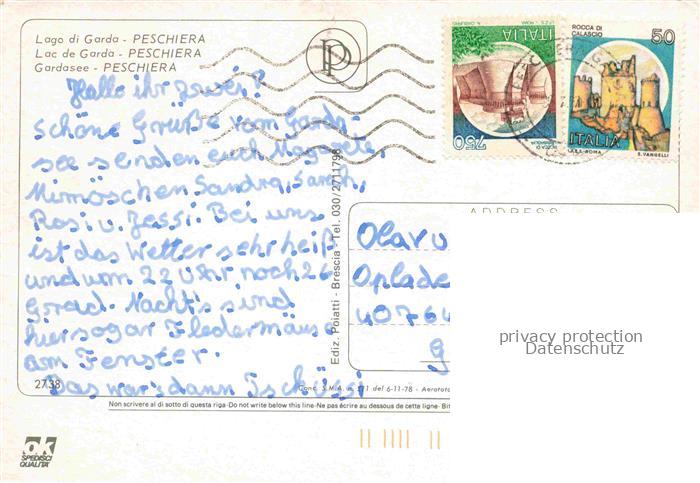 Lago di Garda - PESCHIERA
Lac de Garda - PESCHIERA
Gardasee - PESCHIERA
P
Hallo ihr zwei!
schöne Grüße vom Garda-
see senden euch Magrette,
Mimöschen Sandra, Sarah,
Rosi u. Jessi. Bei uns
ist das Wetter sehr heiß
und um 22 Uhr noch 26
Grad. Nachts sind
hier sogar Fledermäuse
am Fenster.
Das war's dann Tschüssi
2738
Ediz. Poiatti - Brescia - Tel. 030/2711798
ITALIA
750
I.P.Z.S. - ROMA
ROCCA DI CALASCIO
50
ITALIA
I.P.Z.S. ROMA
E. VANGELLI
ADDRESS
Olav u
Oplade
40764
privacy protection
Datenschutz
Conc. S.M.A. n. 371 del 6-11-78 - Aerofoto
Non scrivere al di sotto di questa riga-Do not write below this line-Ne pas écrire au dessous de cette ligne- Bit
ok
SPEDISCI
QUALITA'